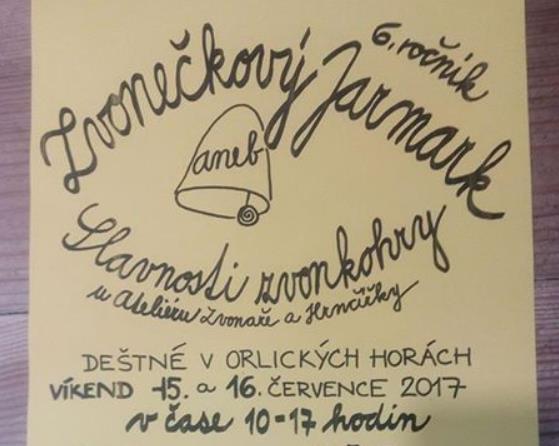 Zvonečkový Jarmark
6. ročník
aneb
Slavnosti zvonkohry
u Ateliéru Zvonaře a Hrnčířky
DEŠTNÉ V ORLICKÝCH HORÁCH
VÍKEND 15. a 16. ČERVENCE 2017
v čase 10-17 hodin